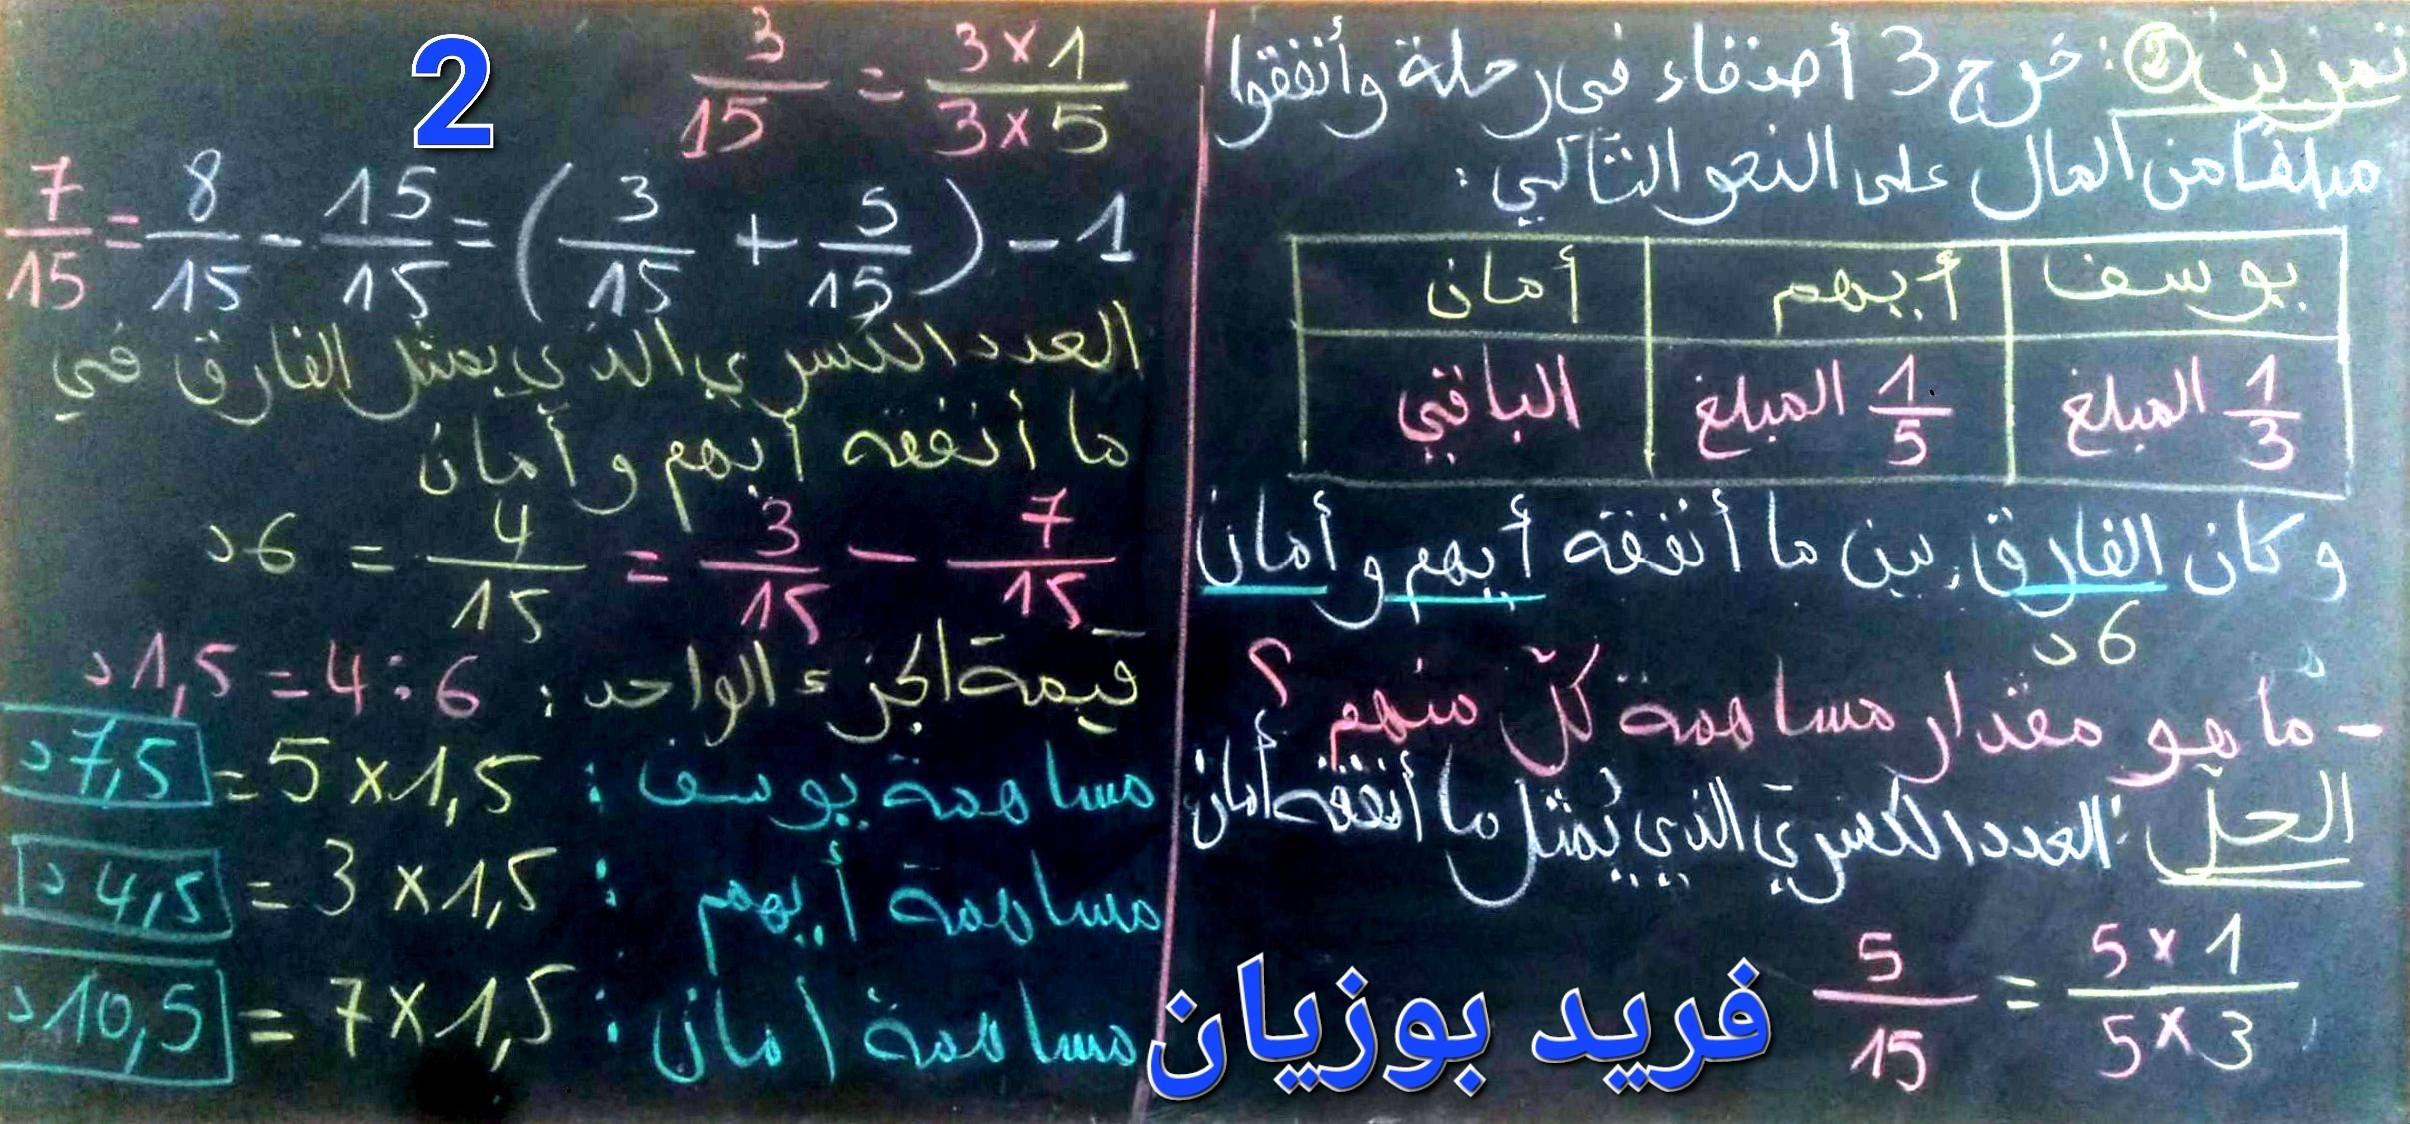 تمرين ②: خرج 3 أصدقاء في رحلة وأنفقوا
مبلغا من المال على النحو التالي:
يوسف أيهم أمان
1/3 المبلغ 1/5 المبلغ الباقي
وكان الفارق بين ما أنفقه أيهم وأمان
6د
- ما هو مقدار مساهمة كلّ منهم؟
الحلّ: العدد الكسريّ الذي يُمثل ما أنفقه أمان
5×1/5×3 = 5/15
فريد بوزيان
2
3×1/3×5 = 3/15
1 - (5/15 + 3/15) = 15/15 - 8/15 = 7/15
العدد الكسري الذي يمثل الفارق في
ما أنفقه أيهم وأمان
7/15 - 3/15 = 4/15 = 6د
قيمة الجزء الواحد: 6 : 4 = 1,5د
مساهمة يوسف: 5×1,5 = 7,5د
مساهمة أيهم: 3×1,5 = 4,5د
مساهمة امان: 7×1,5 = 10,5د